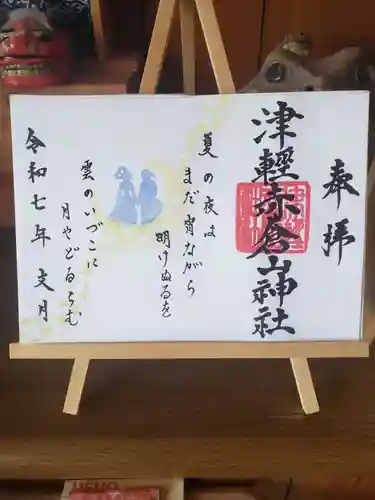 奉拝
津軽赤倉山神社
夏の夜は
まだ宵ながら
明けぬるを
雲のいづこに
月やどるらむ
令和七年 文月